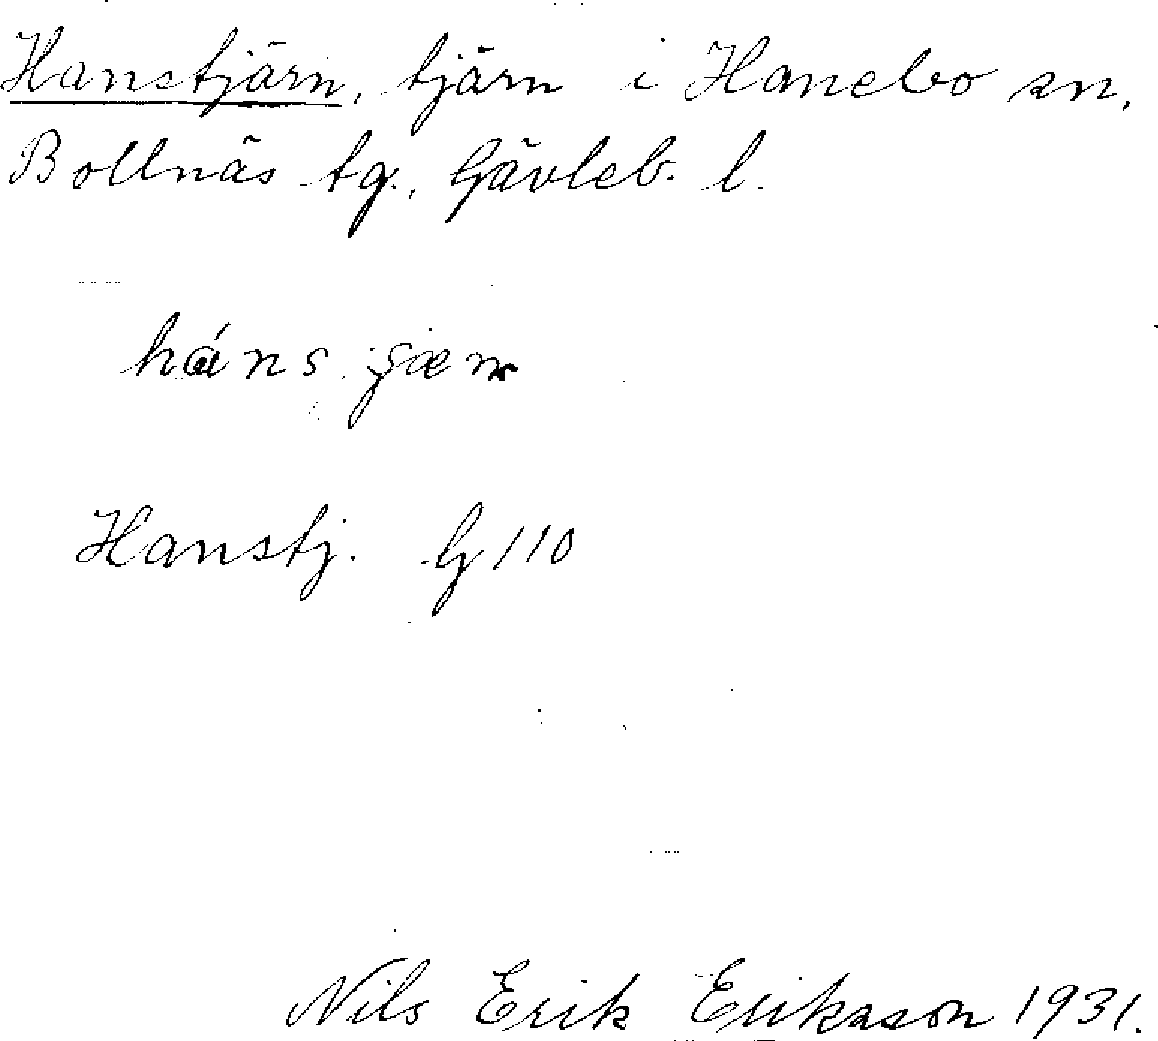 Hanstjärn, tjärn i Hanebo sn,
Bollnäs tg., Gävleb. l.
Hanstj. G 110
Nils Erik Eriksson 1931.